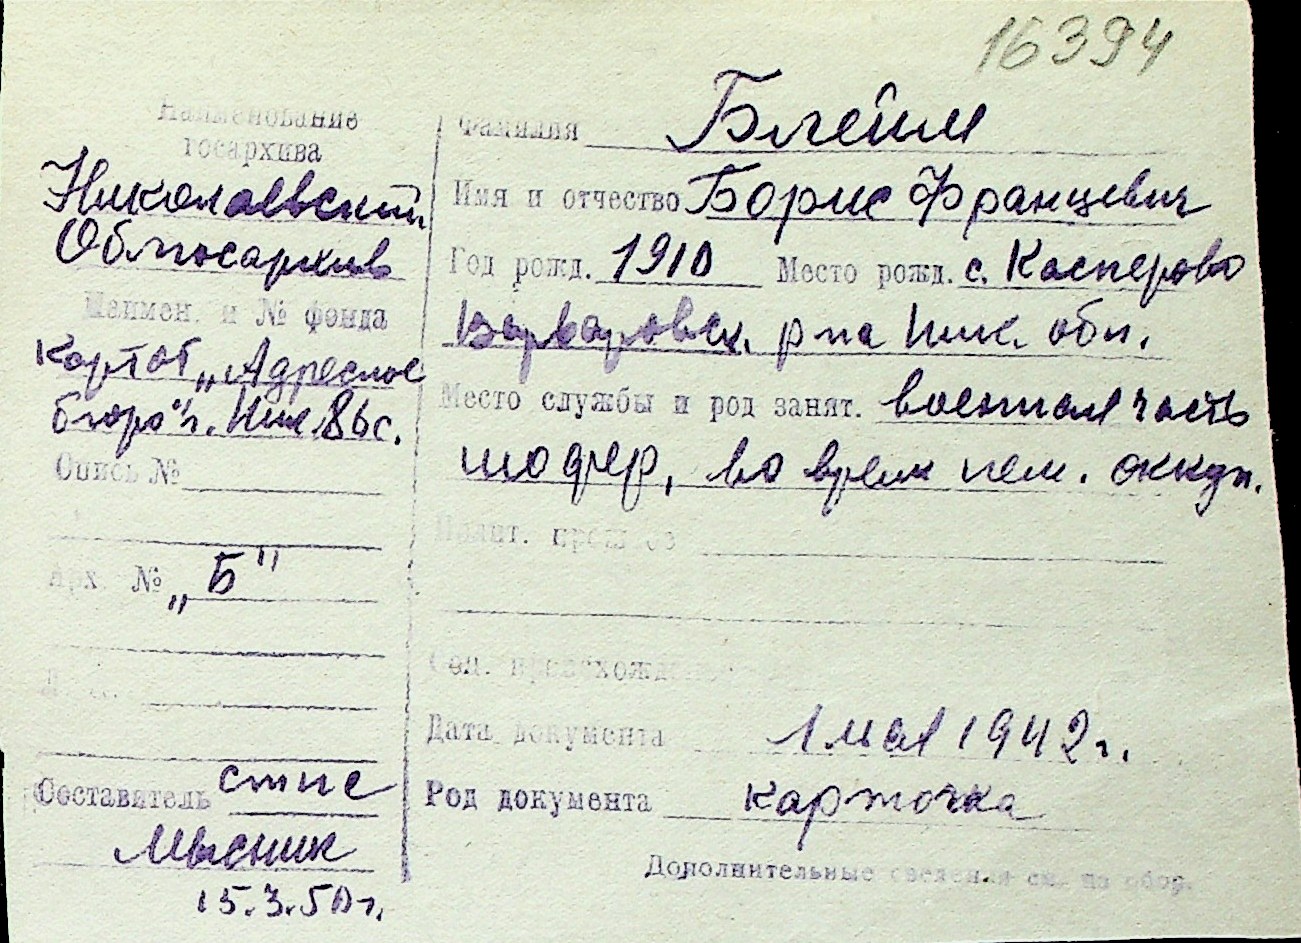 16394
Наименование
госархива
Николаевский
Облгосархив
Наимен. и № фонда
Картот. „Адресное
бюро" г. Ник. 86с.
Опись №
Арх. № „Б"
Составитель
Мысник
15.3.50 г.
Фамилия Блейм
Имя и отчество Борис Францевич
Год рожд. 1910 Место рожд. с. Касперово
Варваровск. р-на Ник. обл.
Место службы и род занят. военная часть
шофер, во время нем. оккуп.
Полит. прошлое
Соц. происхожд
Дата документа 1 мая 1942 г.
Род документа карточка
Дополнительные сведения см. на обор.